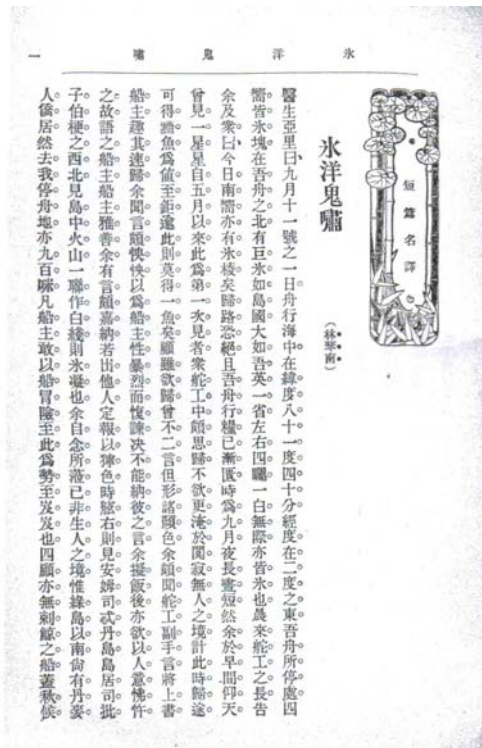 氷洋鬼嘯
一
短篇名譯
氷洋鬼嘯
(林琴南)
醫生亞里曰九月十一號之一日舟行海中在緯度八十一度四十分經度在二度之東吾舟所停處四
嚮皆氷塊在吾舟之北有巨氷如島國大如吾英一省左右四矚一白無際亦皆氷也晨來舵工之長告
余及衆曰今日南嚮亦有氷棱矣歸路恐絕且吾舟行糧已漸匱時爲九月夜長晝短然余於早間仰天
曾見一星星自五月以來此爲第一次見者衆舵工中頗思歸不欲更淹於闃寂無人之境計此時歸途
可得魚爲値至鉅逾此則莫得一魚矣顧雖欲歸曾不二言但形諸顏色余頗聞舵工副手言將上書
船主趣其速歸余聞言頗怏怏以爲船主性暴烈而愎諫决不能納彼之言余擬飯後亦欲以人意怫忤
之故語之船主船主雅善余有言頗嘉納若出他人定報以獰色時舷右則見安姆司忒丹島島居司批
子伯梗之西北見島中火山一聯作白綫則氷凝也余自念所涖已非生人之境惟綠島以南尙有丹麥
人僑居然去我停舟地亦九百咪凡船主敢以船冒險至此爲勢至岌岌也四顧亦無剌鯨之船蓋秋候